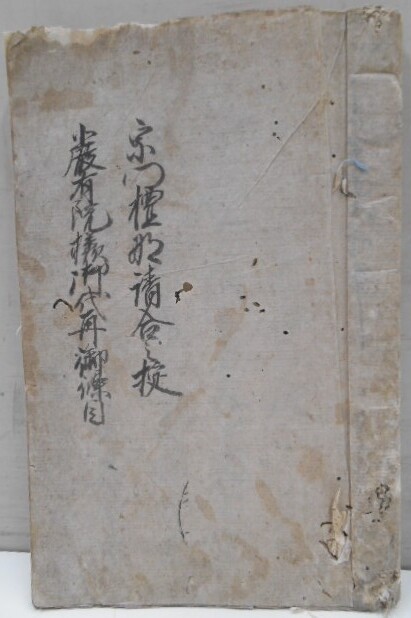 宗門檀那請合之掟
嚴有院様御代再御條目